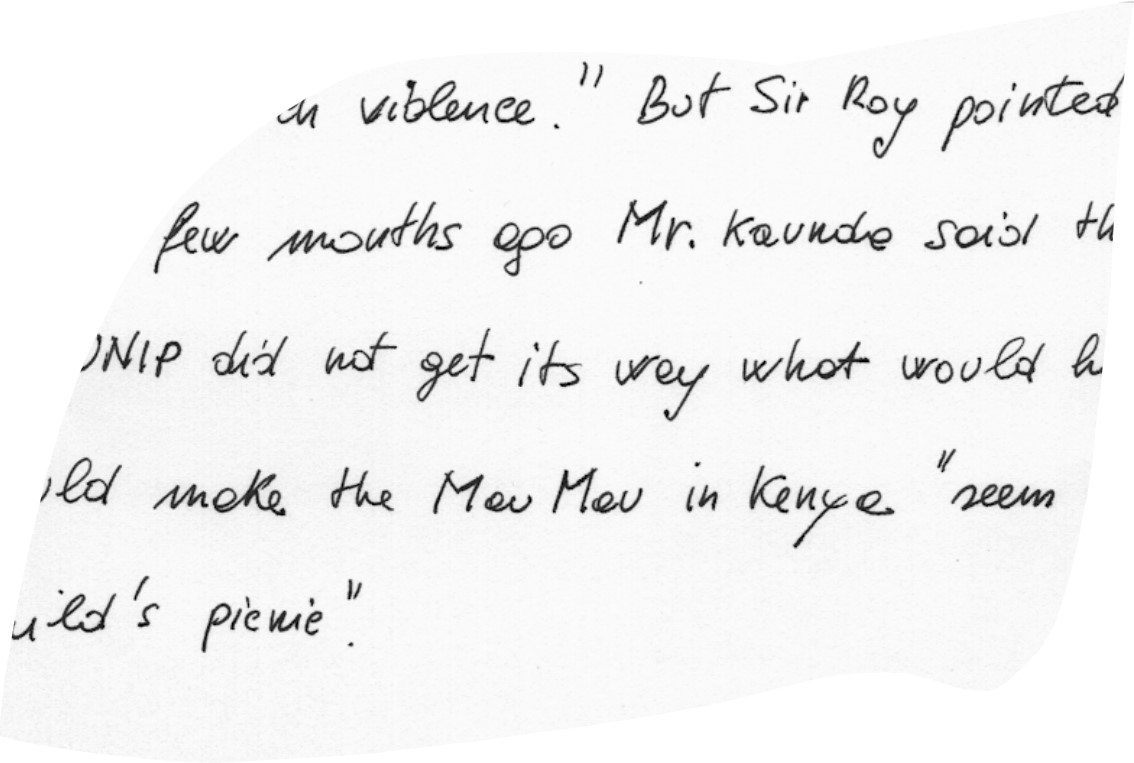 violence." But Sir Roy pointed
few months ago Mr. Kaunda said
did not get its way what would
make the Mau Mau in Kenya "seem
picnic".